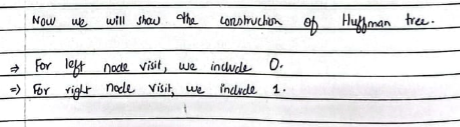 Now we will show the construction of Huffman tree.
⇒ For left node visit, we include 0.
⇒ For right node visit, we include 1.